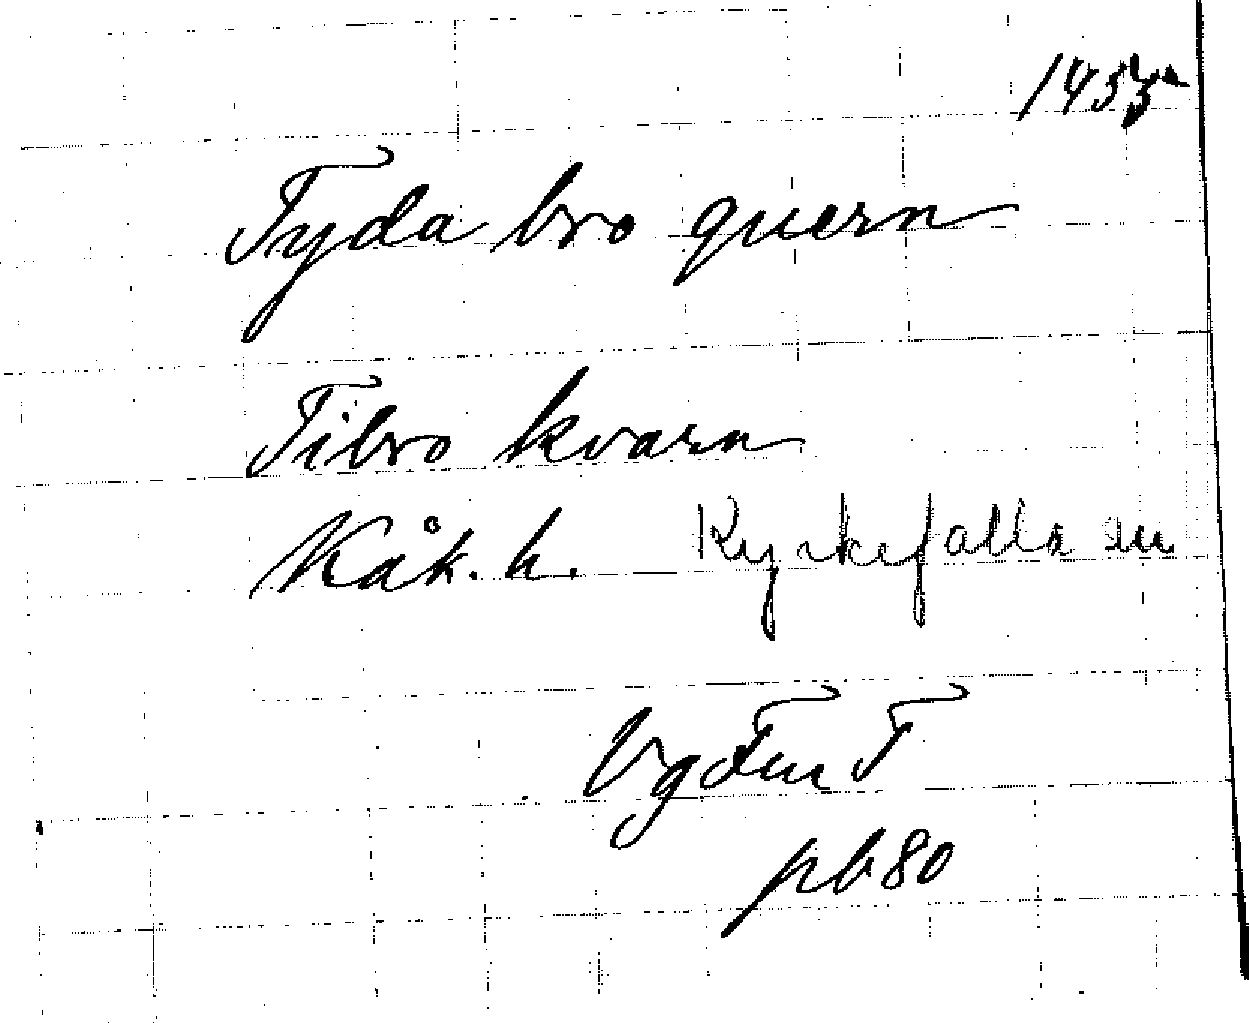 1455
Tyda bro quern
Tibro kvarn
Kåk. h. Kyrkefalla sn
Vg Fur T
pb 80